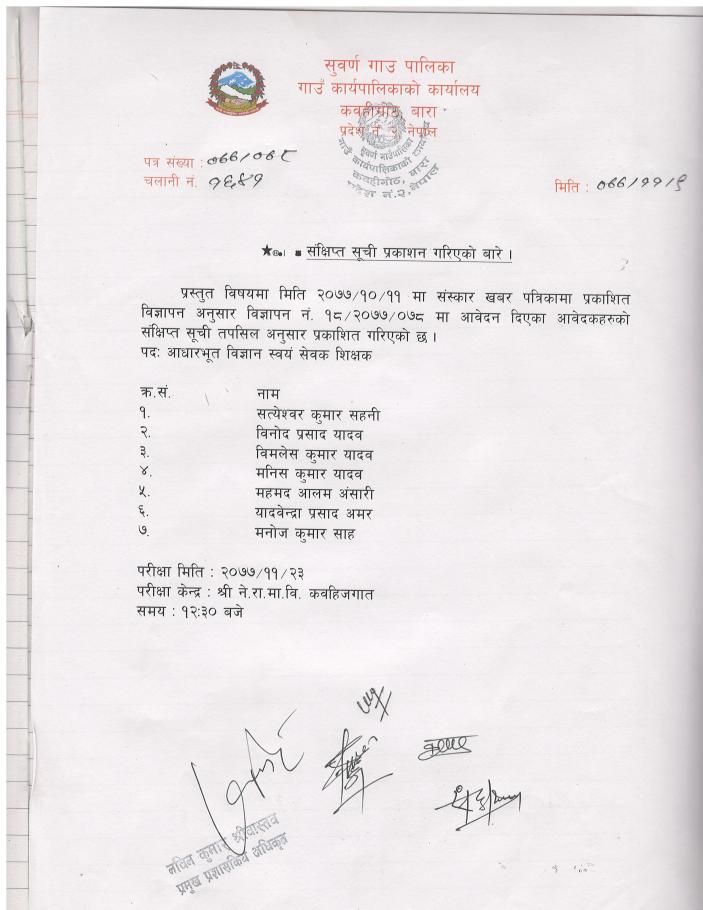 सुवर्ण गाउ पालिका
गाउँ कार्यपालिकाको कार्यालय
कवहीगोठ, बारा
प्रदेश नं. २, नेपाल
सुवर्ण गाउँपालिका
गाउँ कार्यपालिकाको कार्यालय
कवहीगोठ, बारा
प्रदेश नं.२, नेपाल
पत्र संख्या : ०७७/०७८
चलानी नं. १६४१
मिति : ०७७/११/९
संक्षिप्त सूची प्रकाशन गरिएको बारे ।
प्रस्तुत विषयमा मिति २०७७/१०/११ मा संस्कार खबर पत्रिकामा प्रकाशित
विज्ञापन अनुसार विज्ञापन नं. १८/२०७७/०७८ मा आवेदन दिएका आवेदकहरुको
संक्षिप्त सूची तपसिल अनुसार प्रकाशित गरिएको छ ।
पदः आधारभूत विज्ञान स्वयं सेवक शिक्षक
क्र.सं. नाम
१. सत्येश्वर कुमार सहनी
२. विनोद प्रसाद यादव
३. विमलेस कुमार यादव
४. मनिस कुमार यादव
५. महमद आलम अंसारी
६. यादवेन्द्रा प्रसाद अमर
७. मनोज कुमार साह
परीक्षा मिति : २०७७/११/२३
परीक्षा केन्द्र : श्री ने.रा.मा.वि. कवहिजगात
समय : १२:३० बजे
नविन कुमार श्रीवास्तव
प्रमुख प्रशासकिय अधिकृत